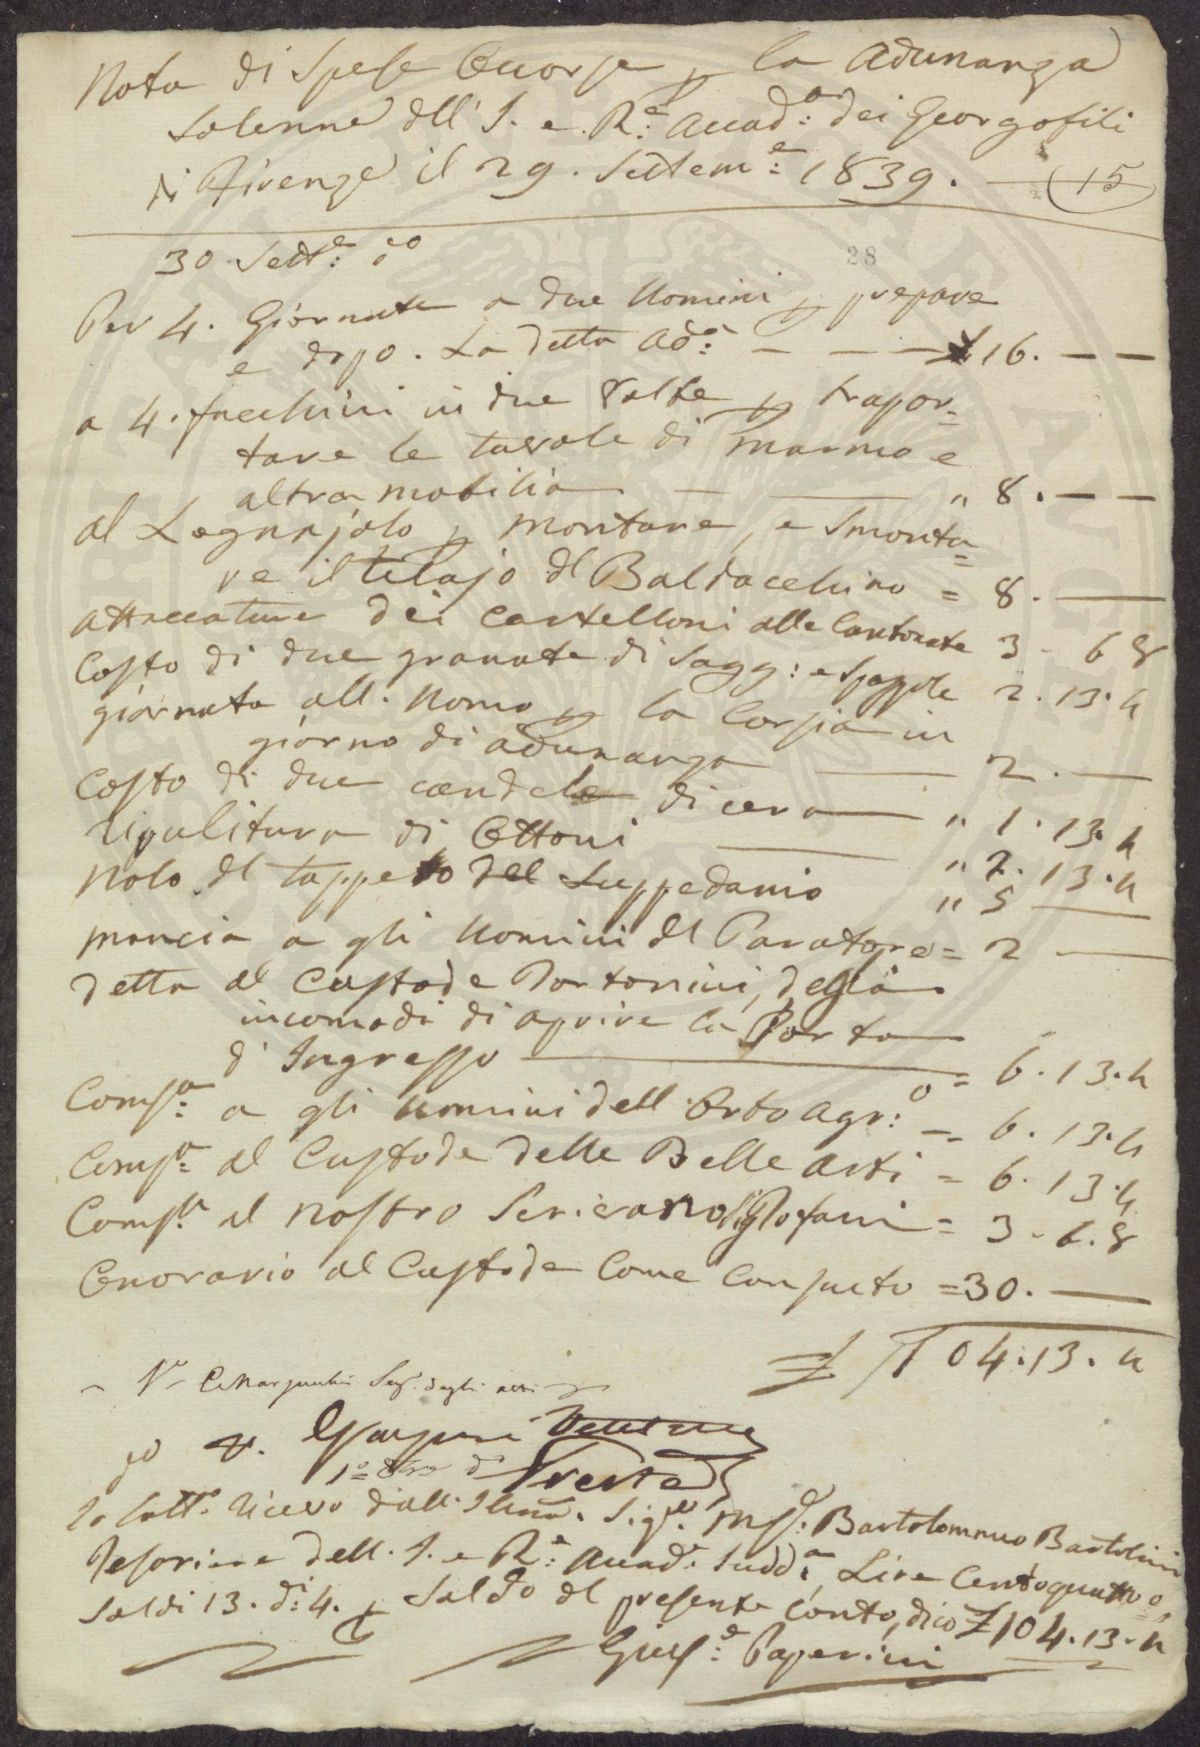 Nota di Spese Occorse p la Adunanza
Solenne dell' I. e R.e Accad.a dei Georgofili
di Firenze il 29. Settem.e 1839. (15)
28
30 Sett.e do
Per 4. Giornate a due Uomini p prepare
e dopo. La detta Ad.a — — — £ 16. — —
a 4. facchini in due Volte p trapor=
tare le tavole di marmo e
altra mobilia — — " 8. — —
al Legnajolo p montare, e Smonta=
re il telajo del Baldacchino = 8. —
attaccature dei Cartelloni alle Cantonate 3 - 6 8
Costo di due granate di Sagg: e Spazzole 2. 13. 4
giornata all. Uomo p la Corsia in
giorno di adunanza — 2. —
Costo di due candele di cera — " 1. 13. 4
ripulitura di Ottoni — " 2. 13. 4
Nolo del tappeto del Suppedanio " 5 —
mancia a gli Uomini del Paratore = 2 —
detta al Custode Portonini, degl'
incomodi di aprire la Porta
d' Ingresso — = 6. 13. 4
Comp.a a gli Uomini dell' Orto Agr.o = 6. 13. 4
Comp.a al Custode delle Belle Arti = 6. 13. 4
Comp.a al nostro Scrivano = 3 - 6. 8
Onorario al Custode Come Consueto = 30. —
£ 104. 13. 4
Seg. degli atti
Io Sott.o Ricevo dall. Illmo. Sig.re Bartolommeo Bartolini
Tesoriere dell. I. e R.e Accad.a Sudd.a Lire Centoquattro
Soldi 13. di 4. p Saldo del presente Conto, dico £ 104. 13. 4
Gius.e Paperini